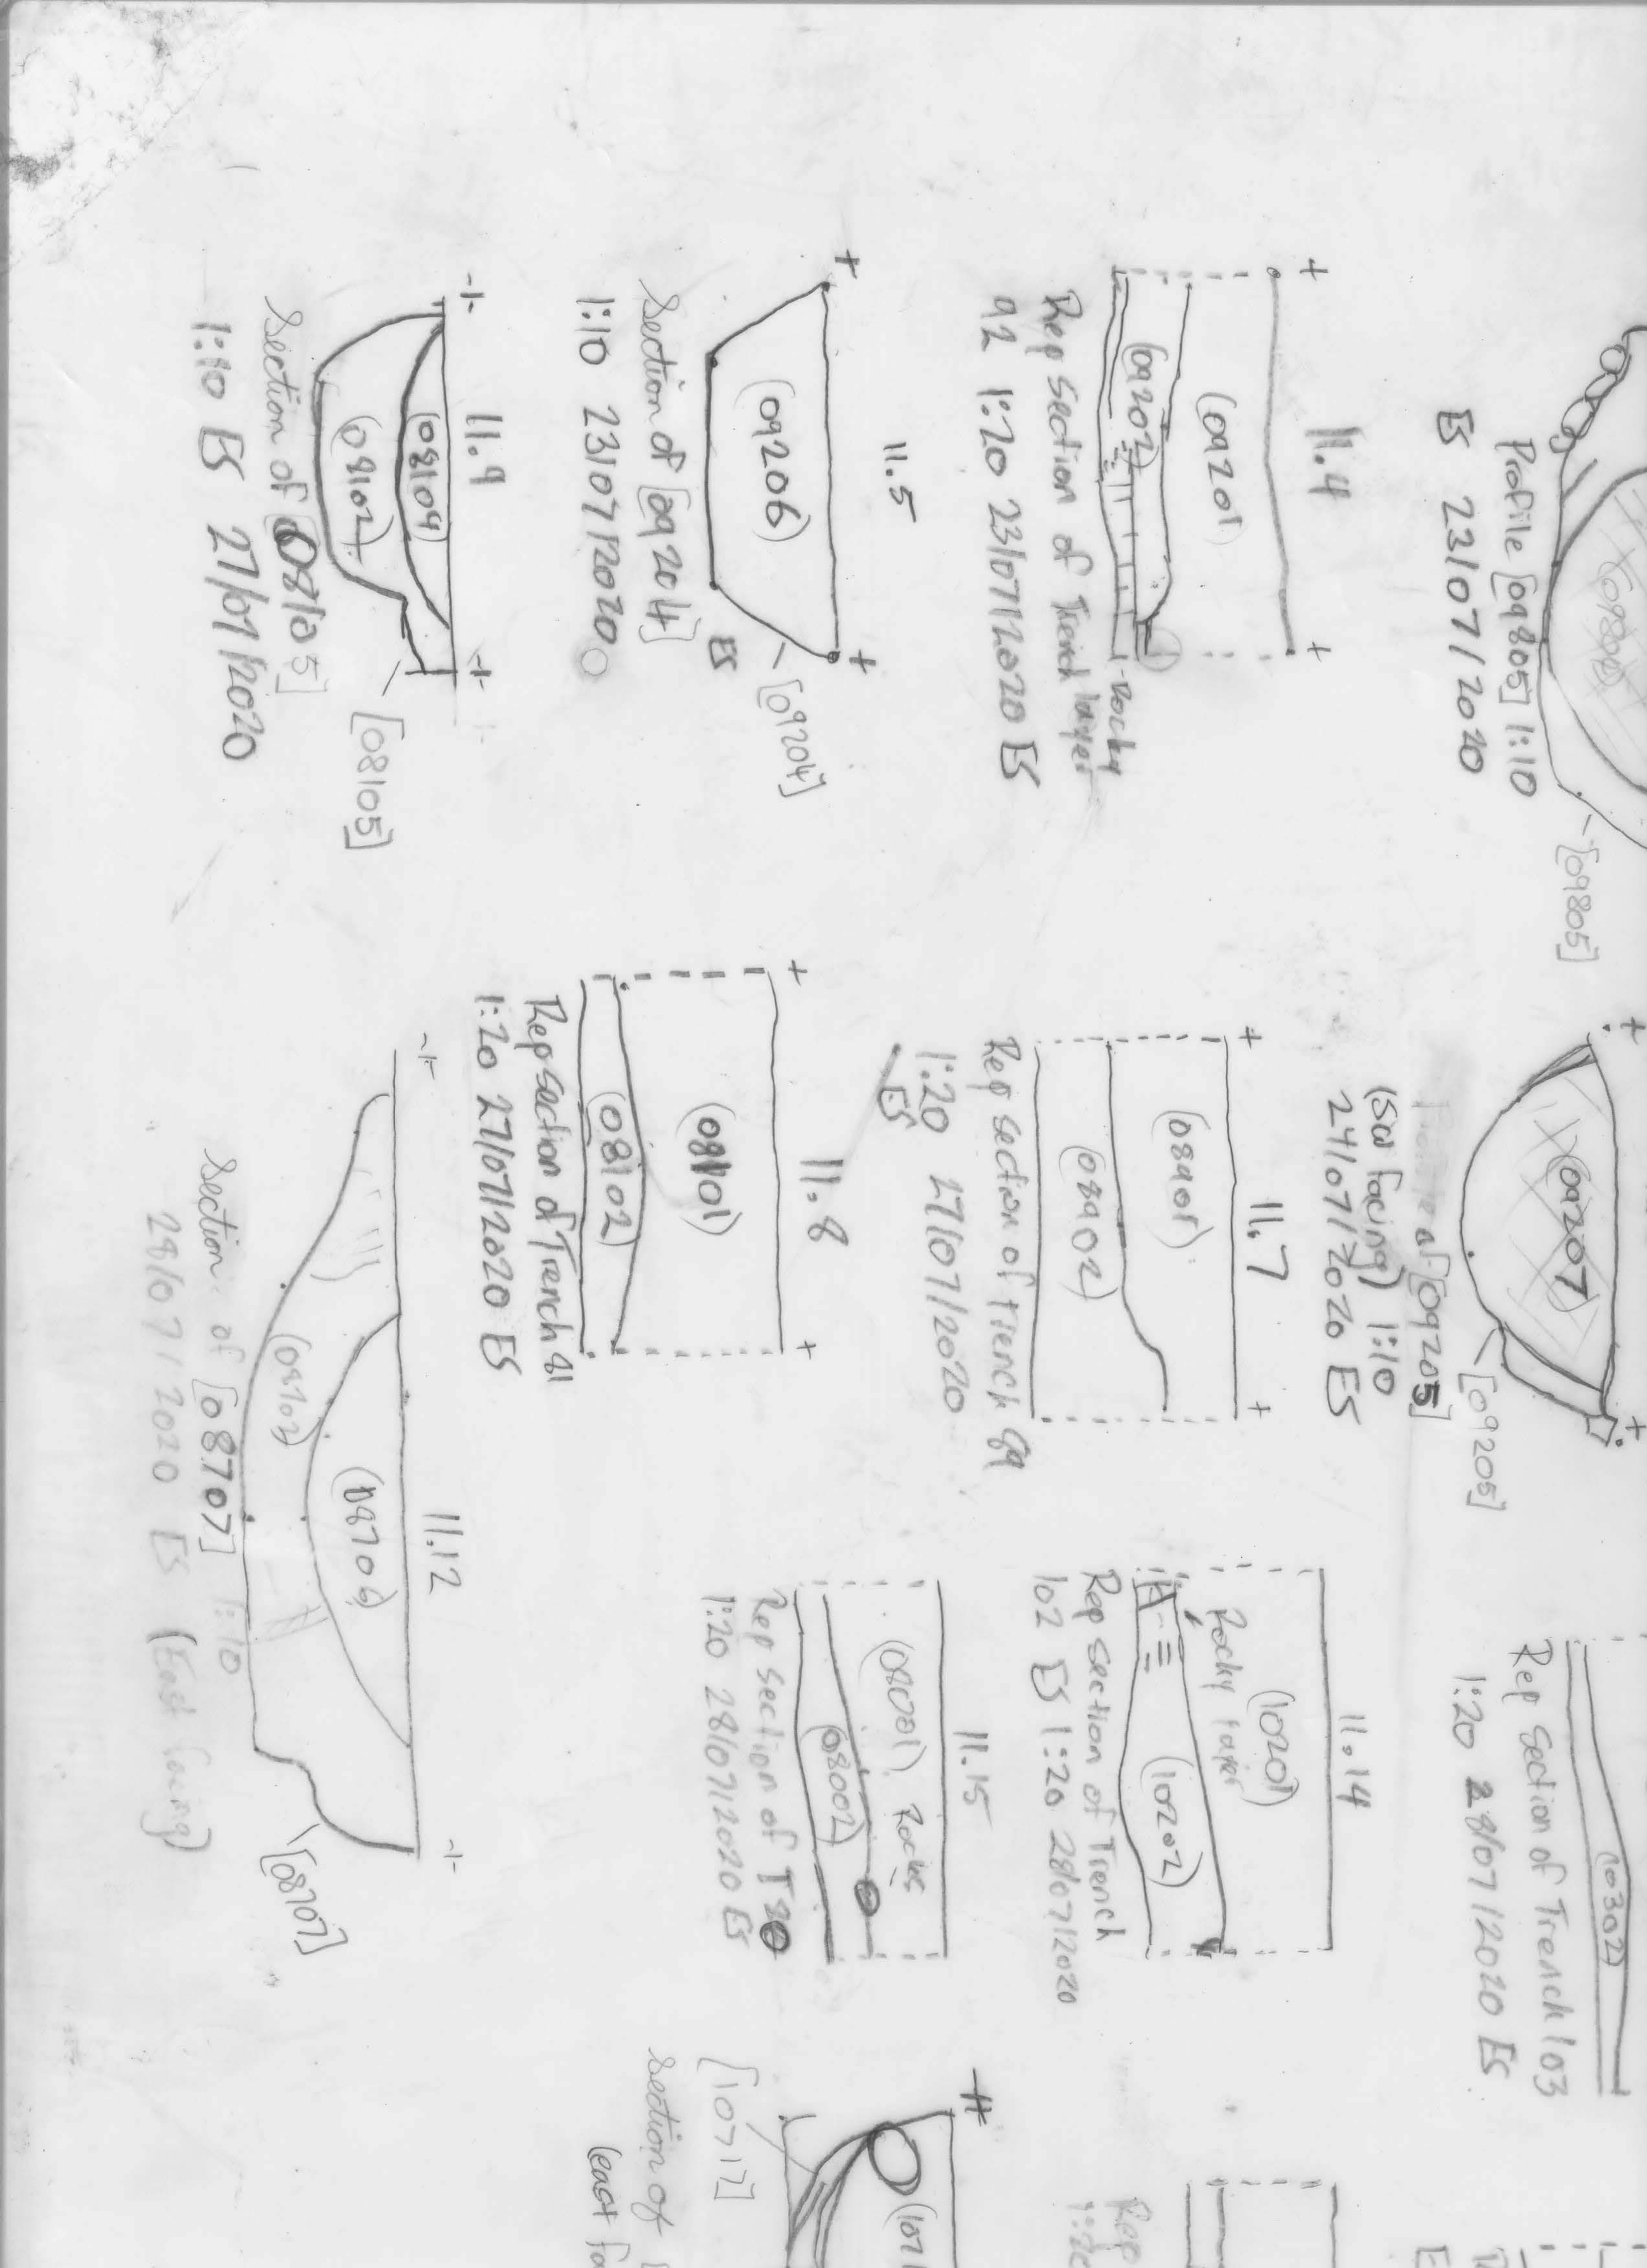 (09806)
Profile [09805] 1:10
ES 23/07/2020
[09805]
11.4
(09201)
(09202)
Rocky layer
Rep section of Trench
92 1:20 23/07/2020 ES
11.5
(09206)
[09204]
ES
Section of [09204]
1:10 23/07/2020
11.9
(08104)
(08102)
[08105]
Section of [08105]
1:10 ES 27/07/2020
(09207)
[09205]
Profile of [09205]
(SW facing) 1:10
24/07/2020 ES
11.7
(08901)
(08902)
Rep section of Trench 89
1:20 27/07/2020
ES
11.8
(08101)
(08102)
Rep section of Trench 81
1:20 27/07/2020 ES
11.12
(08706)
(08702)
[08707]
Section of [08707] 1:10
28/07/2020 ES (East facing)
(10302)
Rep Section of Trench 103
1:20 28/07/2020 ES
11.14
(10201)
Rocky layer
(10202)
Rep section of Trench
102 ES 1:20 28/07/2020
11.15
(08001) Rocks
(08002)
Rep section of T80
1:20 28/07/2020 ES
Rep
1:20
[10717]
Section of
(east fa